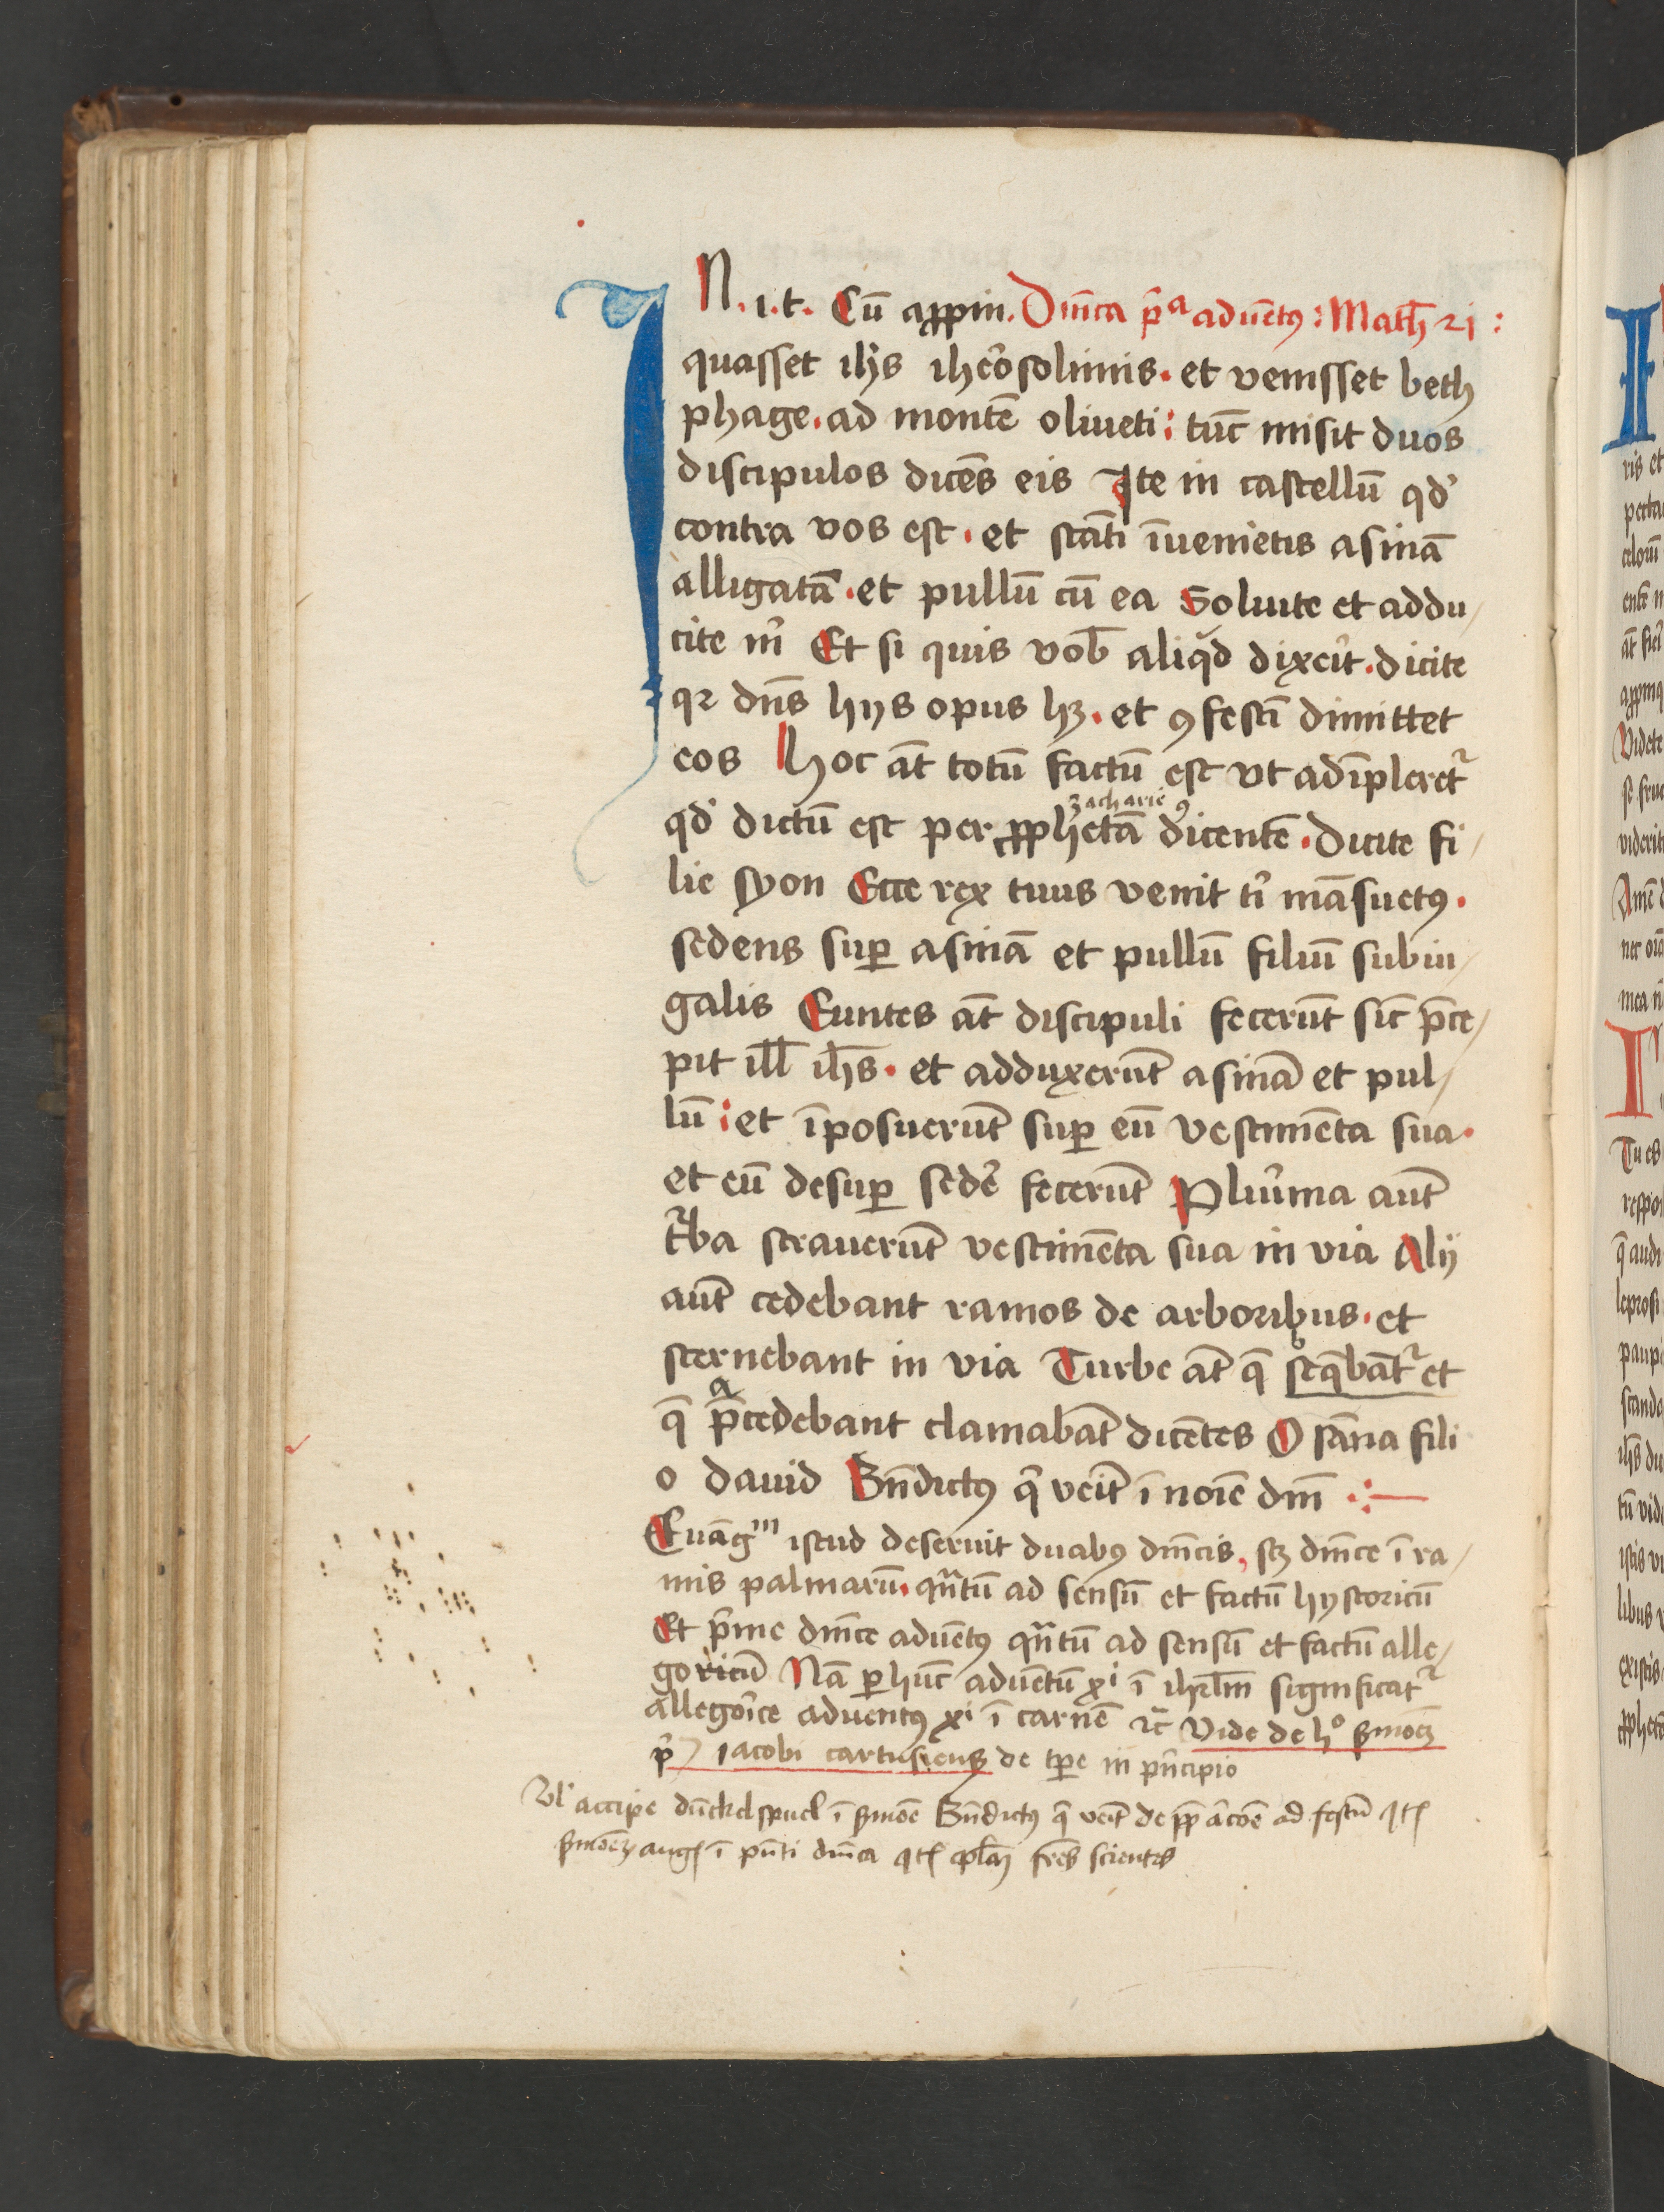 IN .i.t. Cū appin. Dn̄ica p̄ᵃ aduētꝯ : Math̄ 21 :
quasset ihs̄ ihe͛osolimis. et venisset beth
phage. ad montē oliueti: tūc misit duos
discipulos dicēs eis Ite in castellū qd͛
contra vos est. et statī īuenietis asinā
alligatā. et pullū cū ea Soluite et addu/
cite m͛ Et si quis vob̄ aliqd dixe͛it. dicite
qꝛ dn̄s hys opus hꝫ. et ꝯfestī dimittet
eos Hoc āt totū factū est vt adīpleret᷑
qd͛ dictū est per ꝓphetā zacharie dicentē. Dicite fi/
lie syon Ecce rex tuus venit t͛ māsuetꝯ.
sedens suꝑ asinā et pullū filiū subiu/
galis Euntes āt discipuli fecerūt sic̄ p̄ce/
pit ill̄ ih̄s. et adduxerūt asinā et pul/
lū: et īposuerūt suꝑ eū vestimēta sua.
et eū desuꝑ sede͛ fecerūt Plu͛ima aūt
t᷑ba strauerūt vestimēta sua in via Alij
aūt cedebant ramos de arboribus. et
sternebant in via Turbe āt q̄ seq̄bāt᷑ et
q̄ p̄cedebant clamabāt dicētes Osāna fili
o dauid Bn̄dictꝯ q͛ veīt ī noīe dnī
Euāgᵐ istud deseruit duabꝯ dn̄icis, sꝫ dn̄ice ī ra/
mis palmarū. qn̄tū ad sensū et factū hystoricū
Et p͛me dn̄ice aduētꝯ qn̄tū ad sensū et factū alle/
goricū Nā ꝑ hūc aduētū xⁱ ī ihrl̄m significat᷑
allego͛ice aduentꝯ xⁱ ī carnē ⁊c̄ Vide de hº ẜmoēꝫ
p͛ Iacobi cartusiēsꝫ de tꝑe in p͛ncipio
Vl͛ accipe dūckelspuel ī ẜmōe Bn̄dictꝯ q͛ veīt ad festū
ẜmonēꝫ augꝭ ī pn̄ti dn̄ica frēs scientes